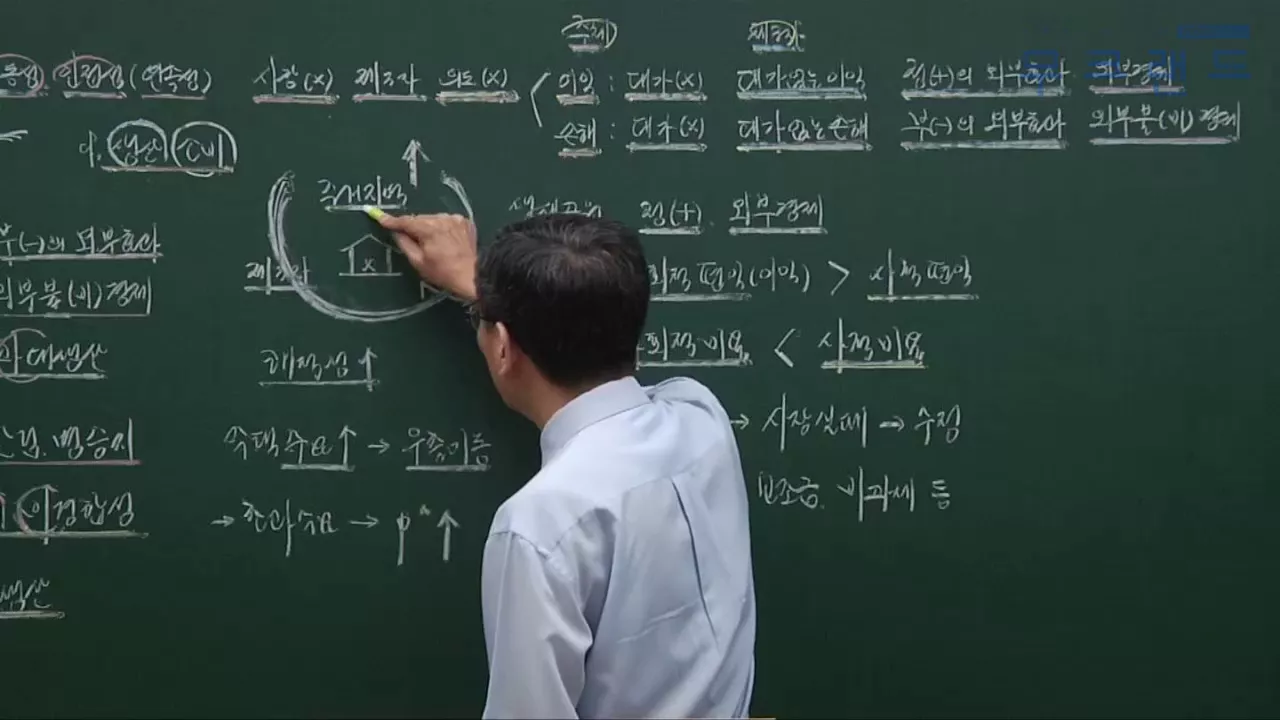 주체
동성 인접성(연속성) 시장(x) 제3자 의도(x) < 이익 : 대가(x) 대가없는 이익 정(+)의 외부효과 외부경제
손해 : 대가(x) 대가없는 손해 부(-)의 외부효과 외부불(비)경제
생산 소비
주거지역
정(+). 외부경제
부(-)의 외부효과
외부불(비)경제
x
편익(이익) > 사적편익
대생산
쾌적성↑
회적비용 < 사적비용
주택수요↑ → 우측이동
→ 시장실패 → 수정
법승지
정합성
→ 초과수요 → p↑
보조금. 비과세 등
생산